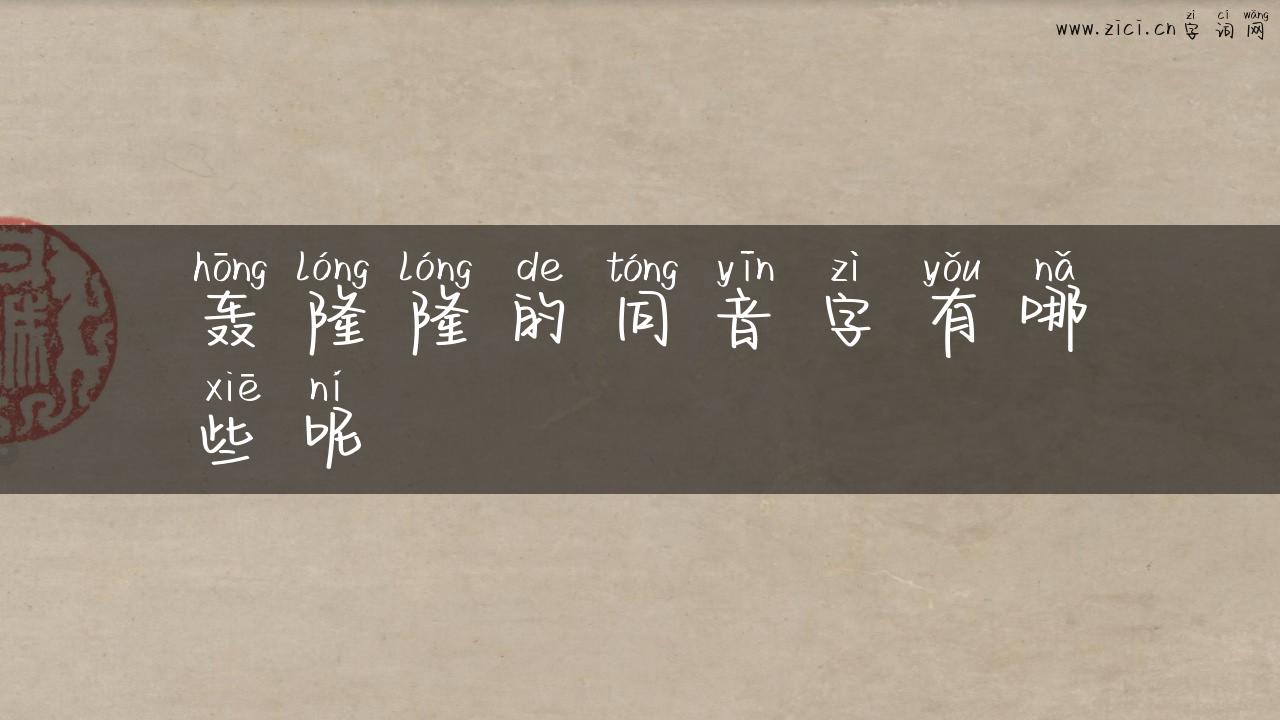 zì cí wǎng
www.zici.cn 字词网
hōng lóng lóng de tóng yīn zì yǒu nǎ
轰隆隆的同音字有哪
xiē ní
些呢